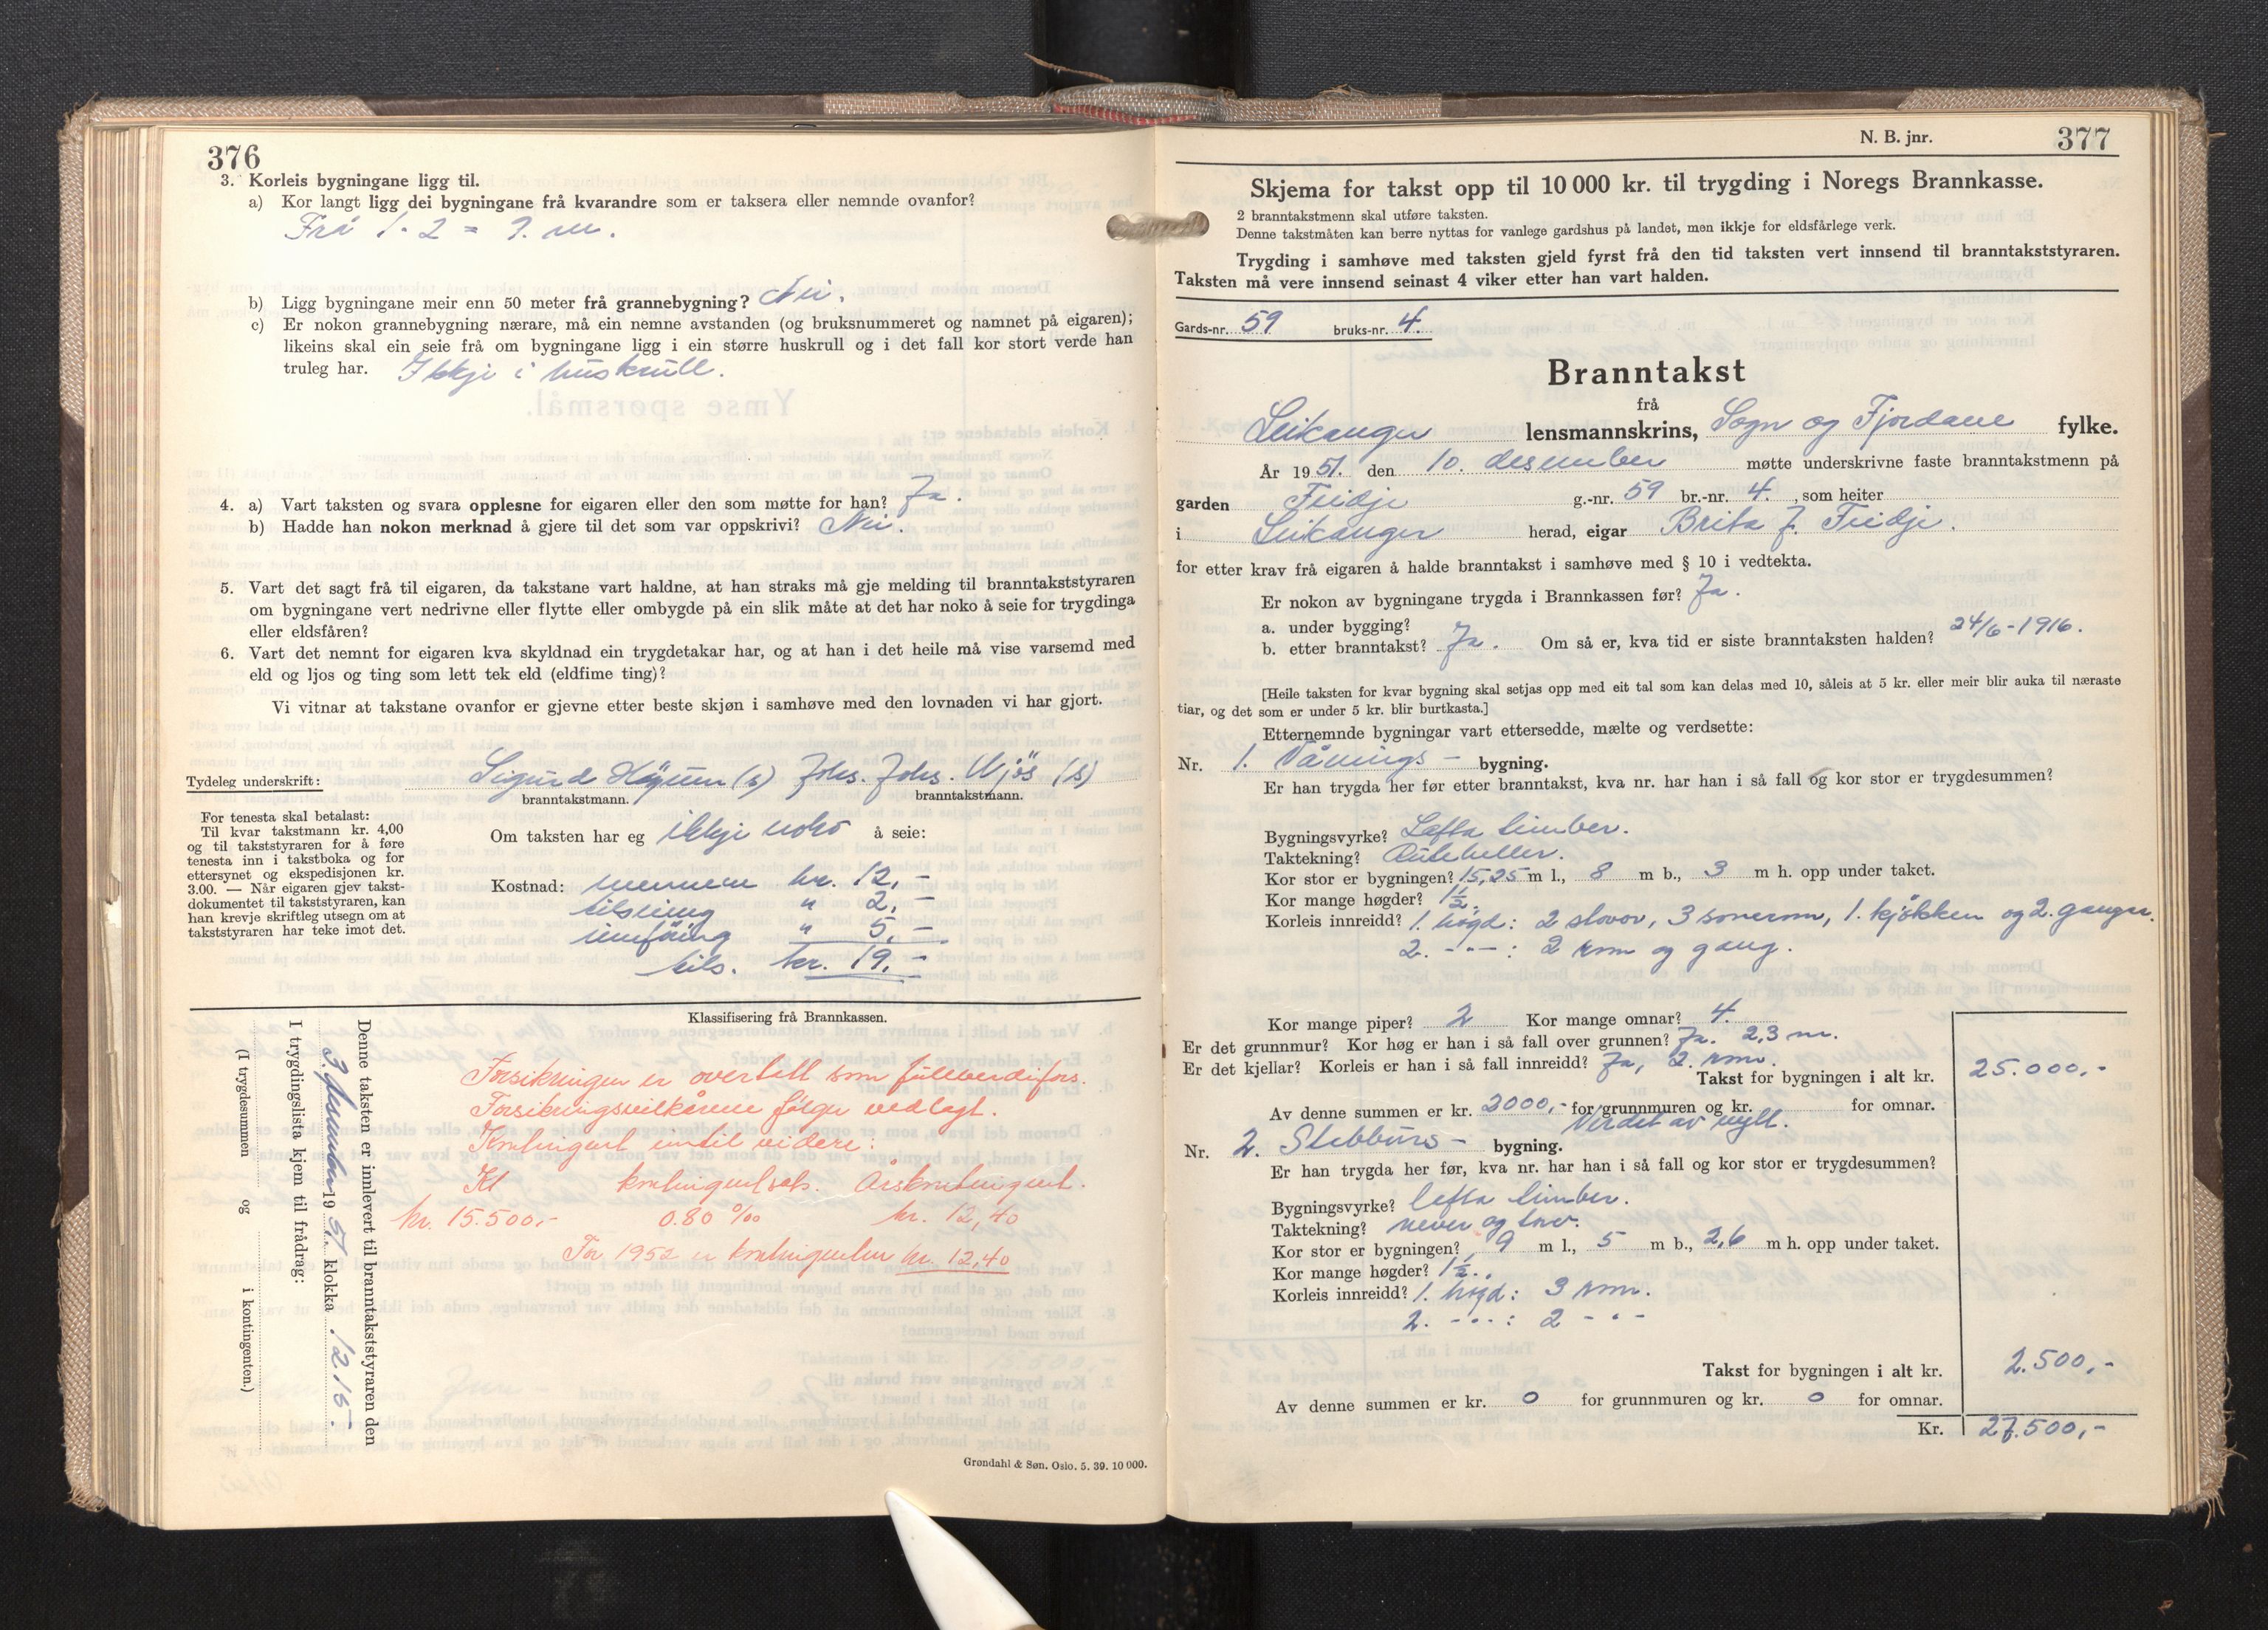 376
3. Korleis bygningane ligg til.
a) Kor langt ligg dei bygningane frå kvarandre som er taksera eller nemnde ovanfor?
Frå 1-2 = 9. m.
b) Ligg bygningane meir enn 50 meter frå grannebygning? Nei.
c) Er nokon grannebygning nærare, må ein nemne avstanden (og bruksnummeret og namnet på eigaren);
likeins skal ein seie frå om bygningane ligg i ein større huskrull og i det fall kor stort verde han
truleg har. Ikkje i huskrull.
4. a) Vart taksten og svara opplesne for eigaren eller den som møtte for han? Ja.
b) Hadde han nokon merknad å gjere til det som var oppskrivi? Nei.
5. Vart det sagt frå til eigaren, da takstane vart haldne, at han straks må gje melding til branntakststyraren
om bygningane vert nedrivne eller flytte eller ombygde på ein slik måte at det har noko å seie for trygdinga
eller eldsfåren?
6. Vart det nemnt for eigaren kva skyldnad ein trygdetakar har, og at han i det heile må vise varsemd med
eld og ljos og ting som lett tek eld (eldfime ting)?
Vi vitnar at takstane ovanfor er gjevne etter beste skjøn i samhøve med den lovnaden vi har gjort.
Tydeleg underskrift: Sigurd Hågum (s) Johs. Johs. Njøs (s)
branntakstmann. branntakstmann.
For tenesta skal betalast:
Til kvar takstmann kr. 4,00
og til takststyraren for å føre
tenesta inn i takstboka og for
ettersynet og ekspedisjonen kr.
3.00. — Når eigaren gjev takst-
dokumentet til takststyraren, kan
han krevje skriftleg utsegn om at
takststyraren har teke imot det.
Om taksten har eg ikkje noko å seie:
Kostnad: mennene kr. 12,-
tilsining " 2,-
innføring " 5,-
tils. kr. 19,-
Klassifisering frå Brannkassen.
Forsikringen er overtatt som fullverdifors.
Forsikringsvilkårene følger vedlagt.
Kontingent inntil videre:
Kl kontingentsats. Årskontingent.
kr. 15.500,- 0.80 ‰ kr. 12,40
For 1952 er kontingenten kr. 12,40
Denne taksten er innlevert til branntakststyraren den
3. desember 1951. klokka 12.15.
I trygdingslista kjem til frådrag:
(I trygdesummen og i kontingenten.)
Grøndahl & Søn. Oslo. 5. 39. 10 000.
N. B. jnr. 377
Skjema for takst opp til 10 000 kr. til trygding i Noregs Brannkasse.
2 branntakstmenn skal utføre taksten.
Denne takstmåten kan berre nyttas for vanlege gardshus på landet, men ikkje for eldsfårlege verk.
Trygding i samhøve med taksten gjeld fyrst frå den tid taksten vert innsend til branntakststyraren.
Taksten må vere innsend seinast 4 viker etter han vart halden.
Gards-nr. 59 bruks-nr. 4.
Branntakst
frå
Leikanger lensmannskrins, Sogn og Fjordane fylke.
År 1951. den 10. desember møtte underskrivne faste branntakstmenn på
garden Feidje g.-nr. 59 br.-nr. 4. , som heiter
i Leikanger herad, eigar Brita J. Feidje.
for etter krav frå eigaren å halde branntakst i samhøve med § 10 i vedtekta.
Er nokon av bygningane trygda i Brannkassen før? Ja.
a. under bygging?
b. etter branntakst? Ja. Om så er, kva tid er siste branntaksten halden? 24/6-1916.
[Heile taksten for kvar bygning skal setjas opp med eit tal som kan delas med 10, såleis at 5 kr. eller meir blir auka til næraste
tiar, og det som er under 5 kr. blir burtkasta.]
Etternemnde bygningar vart ettersedde, mælte og verdsette:
Nr. 1. Vånings- bygning.
Er han trygda her før etter branntakst, kva nr. har han i så fall og kor stor er trygdesummen?
Bygningsvyrke? Lefta timber.
Taktekning? Ruteheller.
Kor stor er bygningen? 15,25 m l., 8 m b., 3 m h. opp under taket.
Kor mange høgder? 1½.
Korleis innreidd? 1. høgd: 2 stovor, 3 soverom, 1. kjøkken og 2. ganger.
2. -"-: 2 rom og gang.
Kor mange piper? 2 Kor mange omnar? 4.
Er det grunnmur? Kor høg er han i så fall over grunnen? Ja. 2,3 m.
Er det kjellar? Korleis er han i så fall innreidd? Ja, 2. rom.
Takst for bygningen i alt kr. 25.000,-
Av denne summen er kr. 2000,- for grunnmuren og kr. for omnar.
Verdet av nytt.
Nr. 2. Stabburs- bygning.
Er han trygda her før, kva nr. har han i så fall og kor stor er trygdesummen?
Bygningsvyrke? Lefta timber.
Taktekning? never og torv.
Kor stor er bygningen? 9 m l., 5 m b., 2,6 m h. opp under taket.
Kor mange høgder? 1½.
Korleis innreidd? 1. høgd: 3 rom.
2. -"-: 2 -"-
Takst for bygningen i alt kr. 2.500,-
Av denne summen er kr. 0 for grunnmuren og kr. 0 for omnar.
Kr. 27.500,-